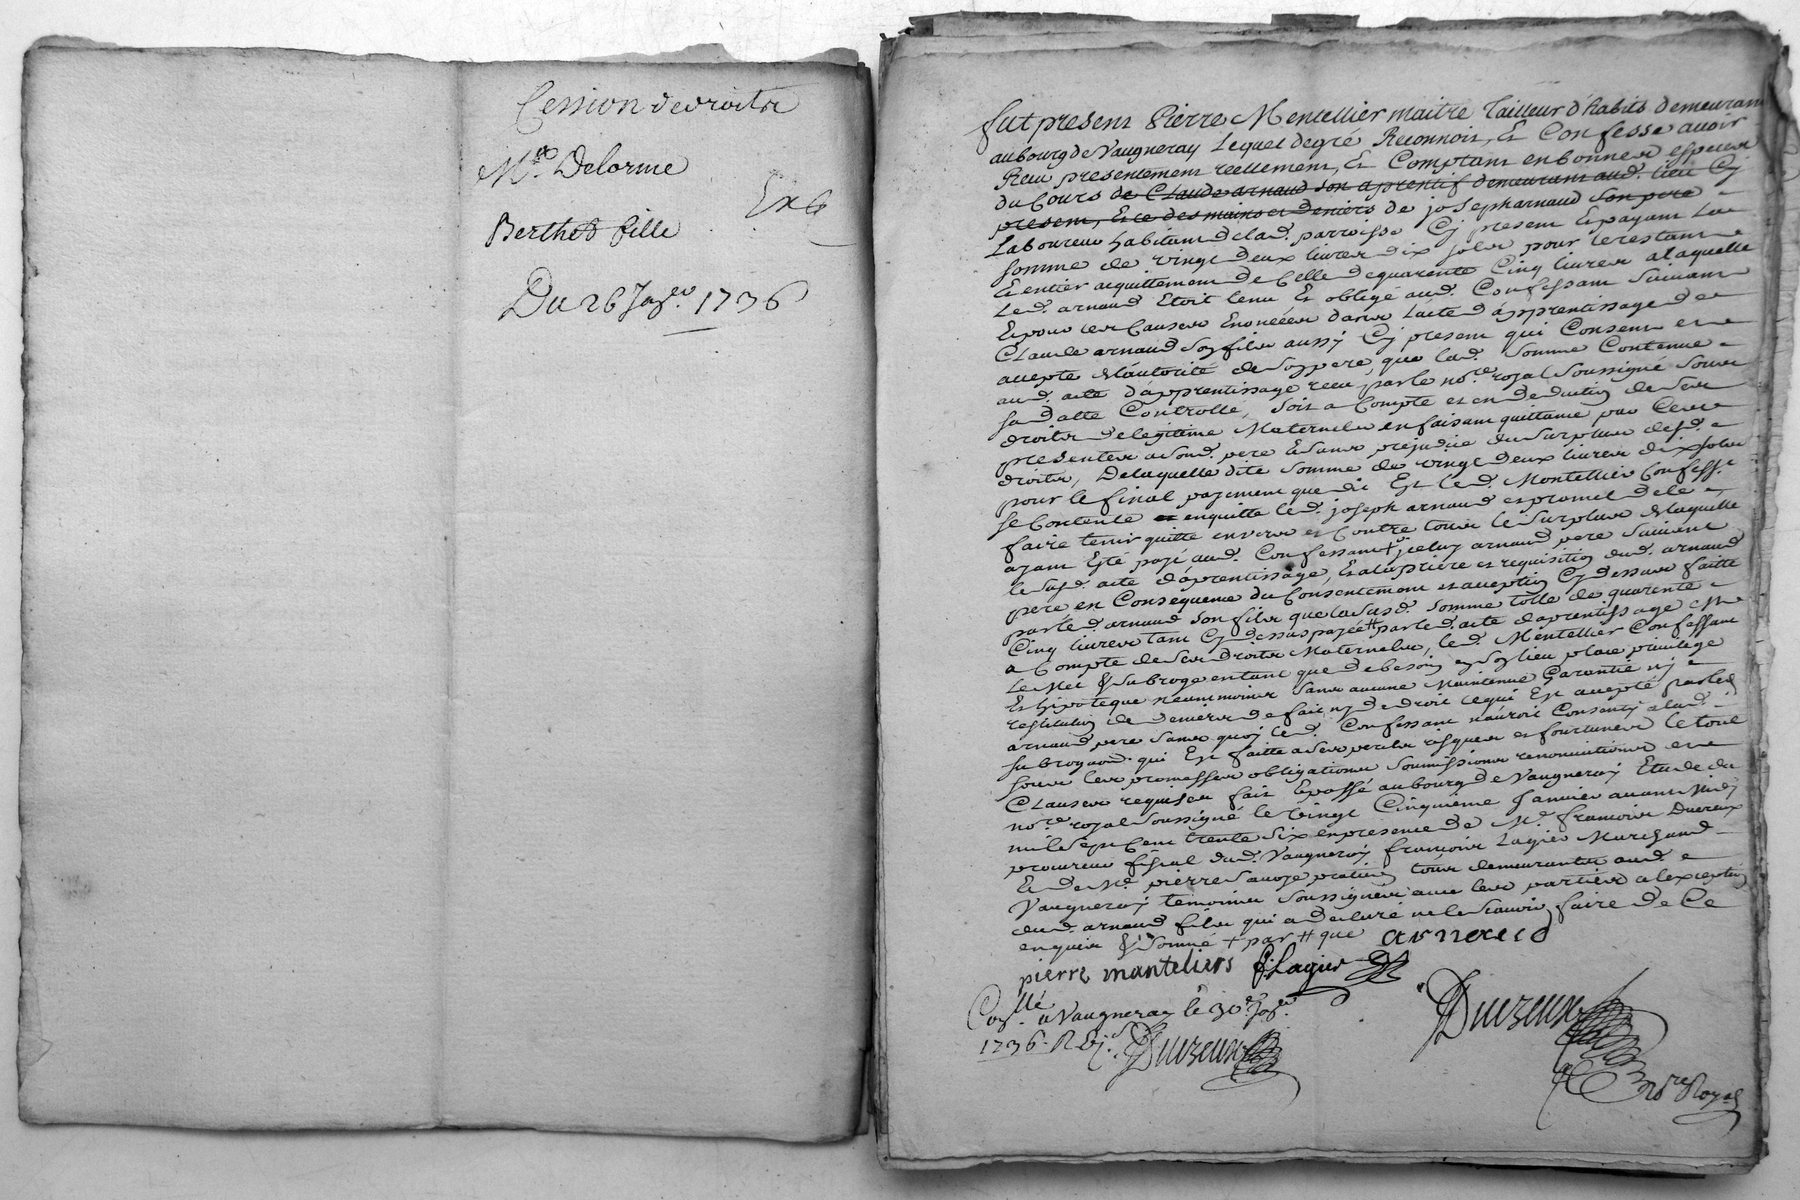 Cession de droits
Mre Delorme
Exp
Berthet fille
Du 26 Jager 1736
fut present Pierre Mentellier maitre Tailleur d'habits demeurant
au bourg de Vaugneray Lequel degré Reconnoit, Et Confesse avoir
Receu presentement reellement, Et Comptant en bonnes especes
du Cours de Claude arnaud son aprentif demeurant aud. lieu Cy
present, Et ce des mains et deniers de joseph arnaud son pere
Laboureur habitant de lad. parroisse Cy present Et payant La
somme de vingt deux livres dix sols pour le restant
Et entier acquittement de Celle de quarente Cinq livres a laquelle
Led. arnaud Etoit tenu Et obligé aud. Confessant Suivant
Et pour les Causes Enoncées dans Lacte d'apprentissage de
Claude arnaud son fils aussy Cy present qui Consent et
accepte de l'autorité de son pere, que lad. Somme Contenue
aud. acte d'apprentissage receu par le nore royal Soussigné Sous
sa datte Controllé, soit a Compte et en deduction de Ses
droits de legitime Maternels en faisant quittance par Ces
presentes a sond. pere Et Sans prejudice du Surplus desd.
droits, De laquelle dite Somme de vingt deux livres dix sols
pour le final payement que dit Est led. Montellier Confesst
se Contente en quitte led. joseph arnaud et promet de le
faire tenir quitte envers et Contre tous le Surplus de laquelle
ayant Eté payé aud. Confessant + jceluy arnaud pere Suivant
le susd. acte d'aprentissage, Et a la priere et requisition dud. arnaud
pere en Consequence du Consentement et acceptation Cy dessus faitte
par led. arnaud son fils que la susd. Somme totte de quarente
Cinq livres tant Cy dessus payée # par led. acte d'aprentissage est
a Compte de Ses droits Maternels, led. Mentellier Confessant
Le Met & Subroge en tant que de besoin en son lieu place privilege
Et hipoteque neantmoins Sans aucune Maintenue Garantie ny
restitution de deniers de fait ny de droit ce qui Est accepté par led.
arnaud pere Sans quoy led. Confessant n'auroit Consenty a lad.
subrogaon. qui Est faitte a Ses perils risques et fortunes le tout
sous les promesses obligations Soumissions renonciations et
Clauses requises fait Et passé au bourg de Vaugneray Etude du
nore royal Soussigné le Vingt Cinquieme Janvier avant Midy
mil Sept Cent trente Six en presence de Me francois Duvzeux
procureur fiscal dud. Vaugneray francois Lagier Marchand
Et de Me pierre Sauvge praticien tous demeurants aud.
Vaugneray temoins Soussignés avec les parties a lexception
dud. arnaud fils qui a declaré ne le Scavoir faire de Ce
enquis & Sommé + par # que arnaud
pierre manteliers f. Lagier
Conllé a Vaugneray le 30e Jager
1736. R
Duvzeux
Duvzeux
nore Royal